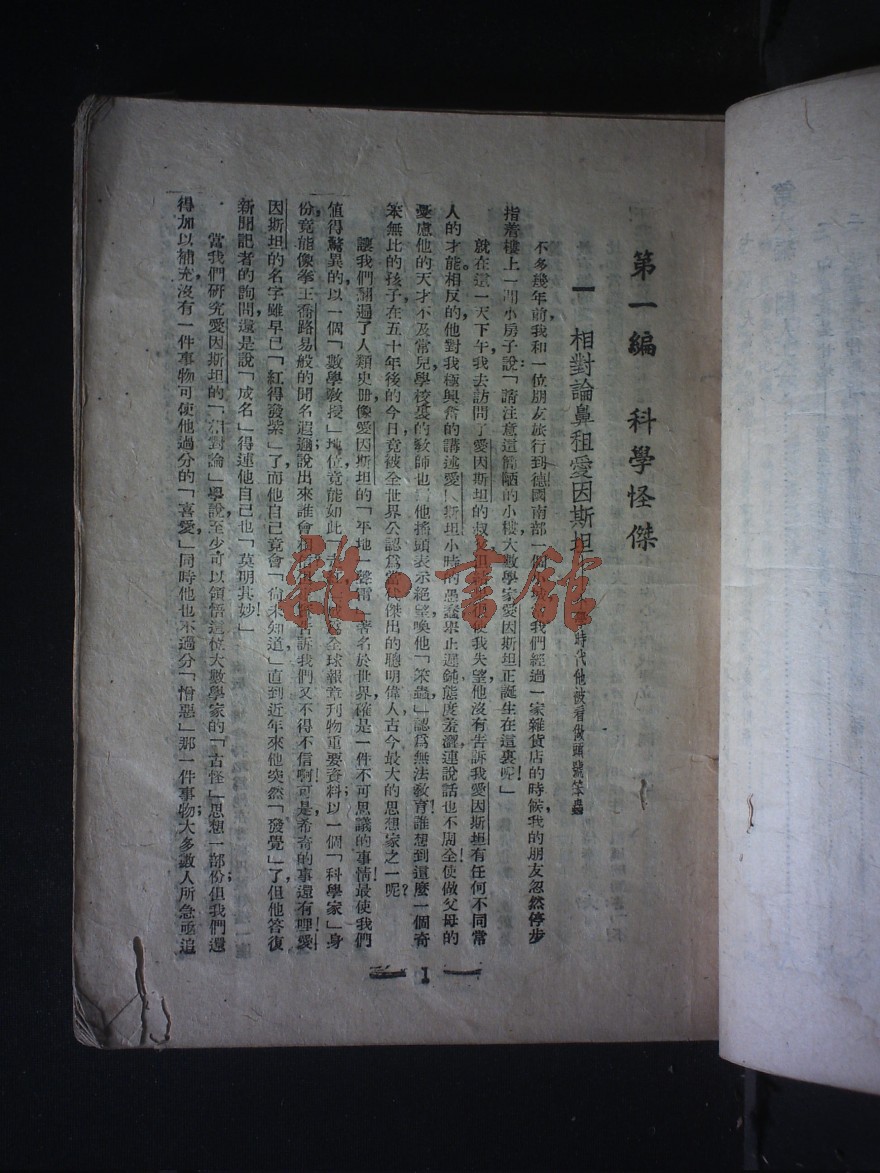 第一編　科學怪傑
一　相對論鼻祖愛因斯坦　時代他被看做頭號笨蟲
不多幾年前我和一位朋友旅行到德國南部一個　我們經過一家雜貨店的時候我的朋友忽然停步
指着樓上一間小房子說「請注意這簡陋的小樓大數學家愛因斯坦正誕生在這裏呢」
就在這一天下午我去訪問了愛因斯坦的叔　使我失望他沒有告訴我愛因斯坦有任何不同常
人的才能相反的他對我極興奮的講述愛因斯坦小時的愚蠢舉止遲鈍態度羞澀連說話也不周全使做父母的
憂慮他的天才不及常兒學校裏的教師也　他搖頭表示絕望喚他「笨蟲」認爲無法教育誰想到這麼一個奇
笨無比的孩子在五十年後的今日竟被全世界公認爲當代傑出的聰明偉人古今最大的思想家之一呢？
讓我們翻過了人類史册像愛因斯坦的「平地一聲雷」著名於世界確是一件不可思議的事情最使我們
值得驚異的以一個「數學教授」地位竟能如此　全球報章刊物重要資料以一個「科學家」身
份竟能像拳王喬路易般的聞名遐邇說出來誰會相信　告訴我們又不得不信啊可是希奇的事還有哩愛
因斯坦的名字雖早已「紅得發紫」了而他自己竟會「尚未知道」直到近年來他突然「發覺」了但他答復
新聞記者的詢問還是說「成名」得連他自己也「莫明其妙」
當我們研究愛因斯坦的「相對論」學說至少可以領悟這位大數學家的「古怪」思想一部份但我們還
得加以補充沒有一件事物可使他過分的「喜愛」同時他也不過分「憎惡」那一件事物大多數人所急亟追
1
雜·書館